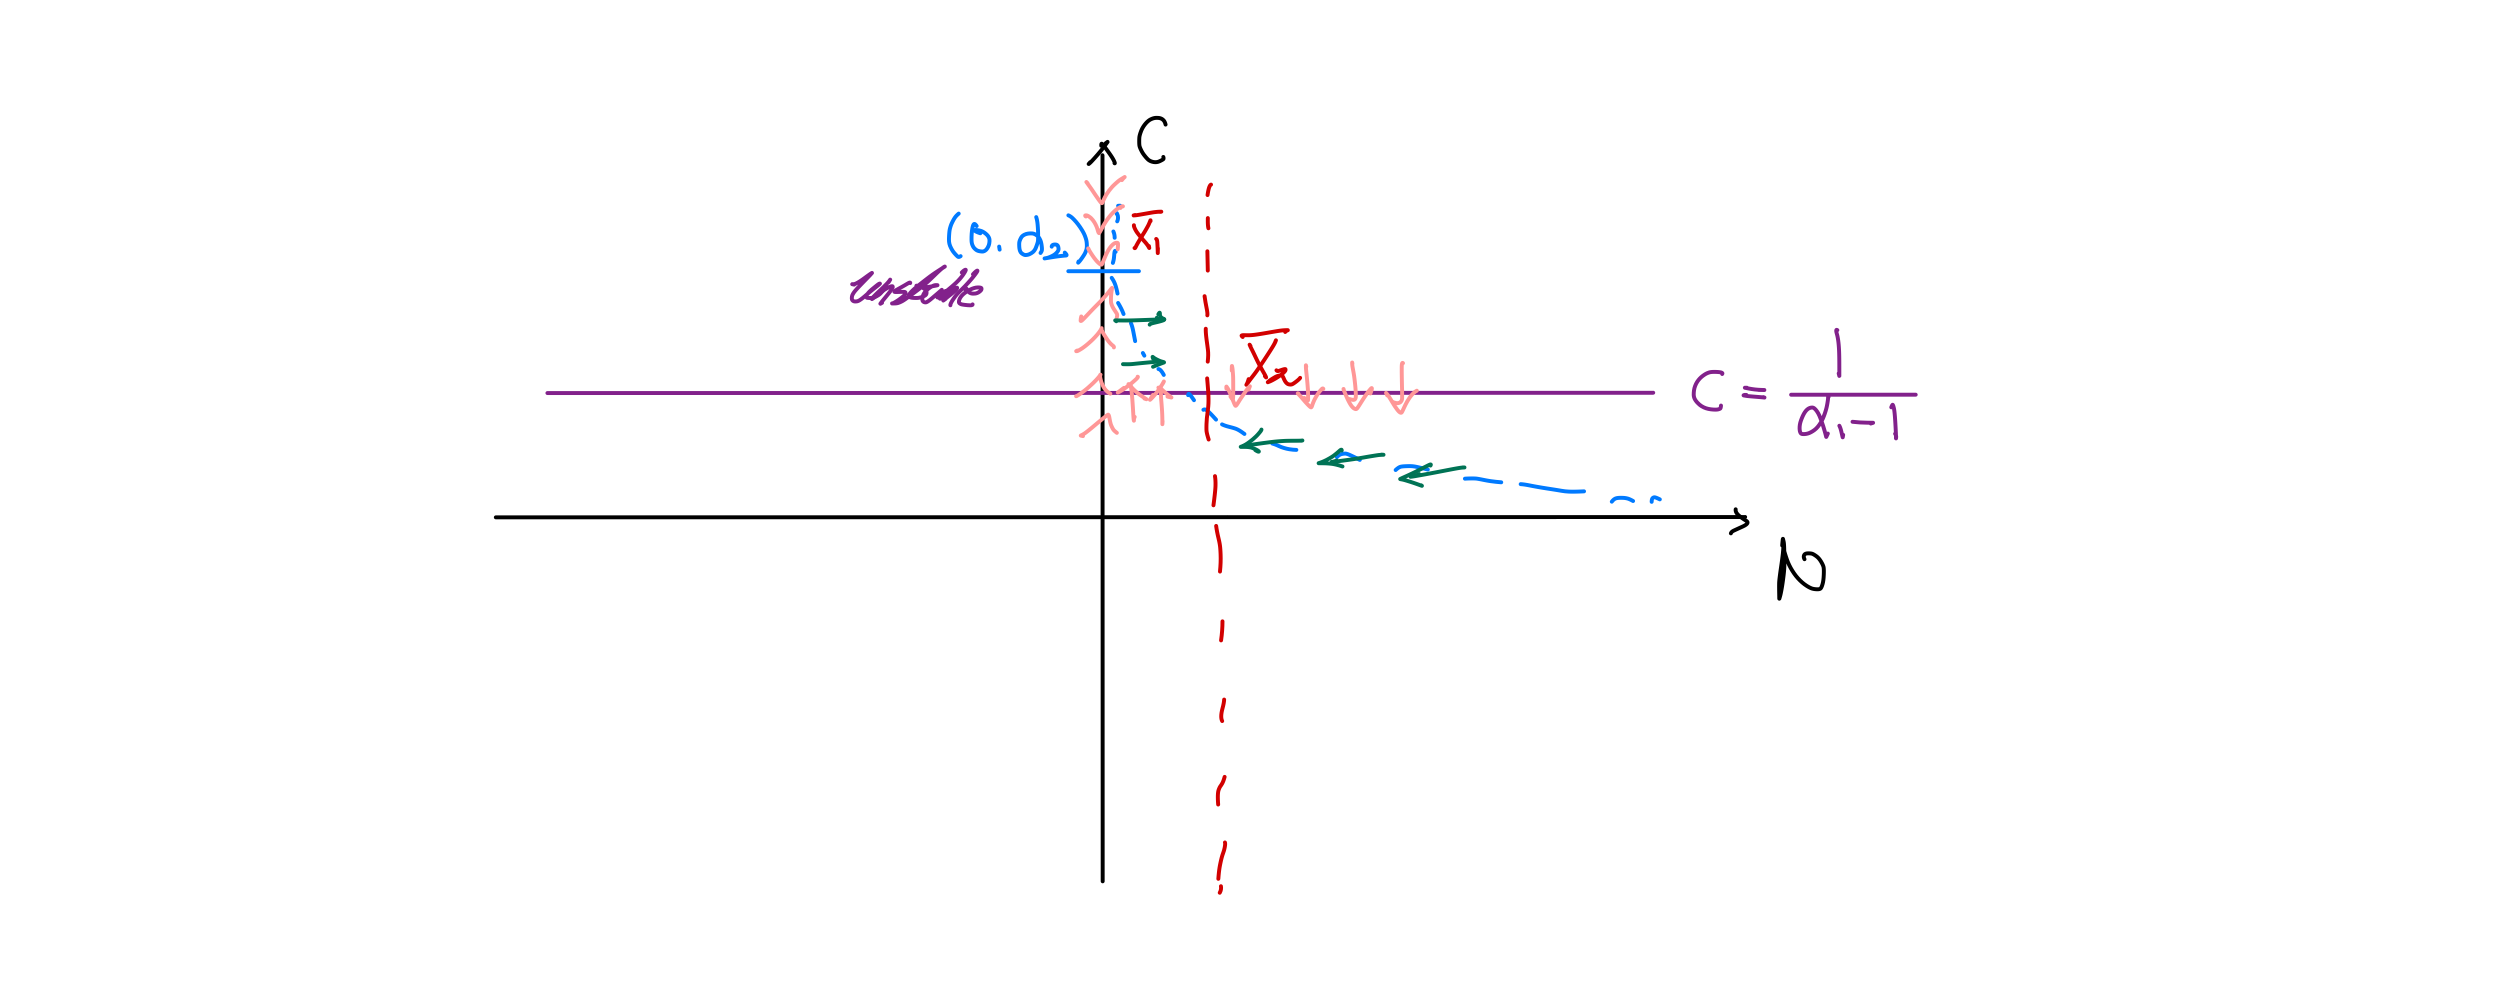 C
(0, α₂)
x̄₁
unstable
x̄₂
C = 1 / (α₁ - 1)
N